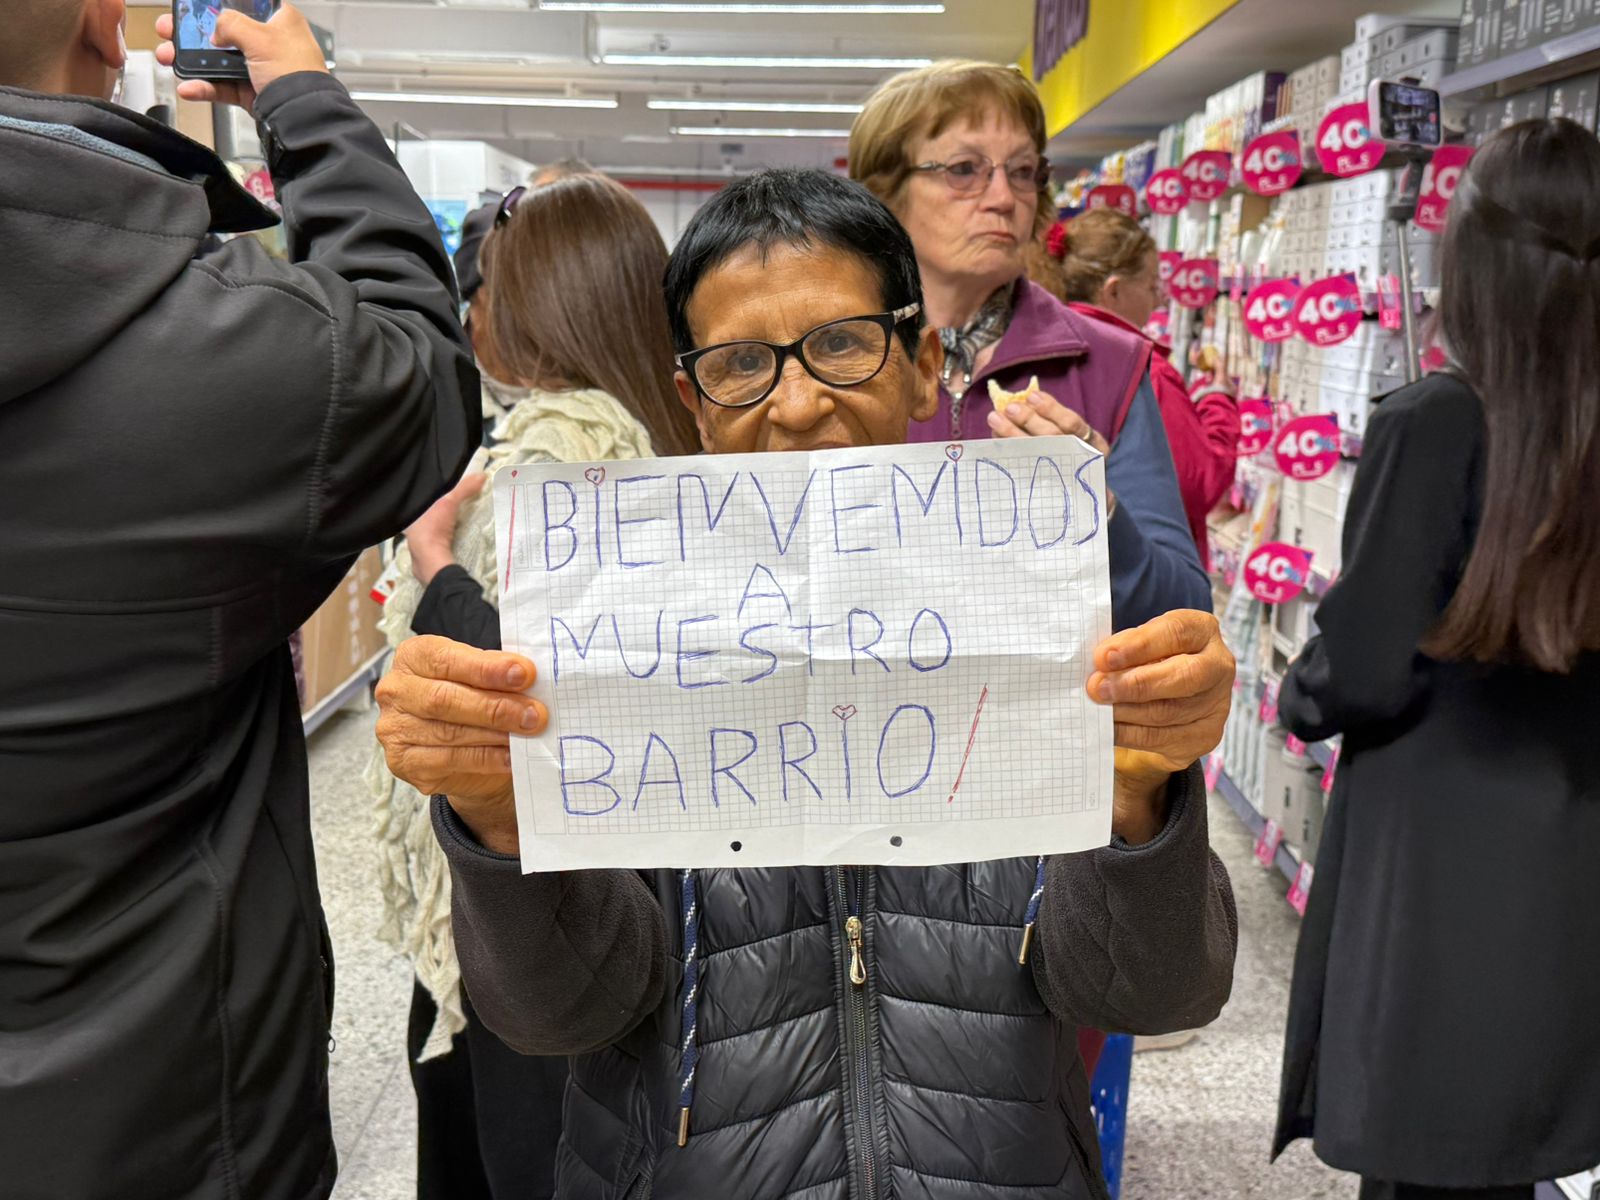 ¡BIENVENIDOS
A
NUESTRO
BARRIO!
40%
40%
40%
40%
40%
40%
40%
40%
40%